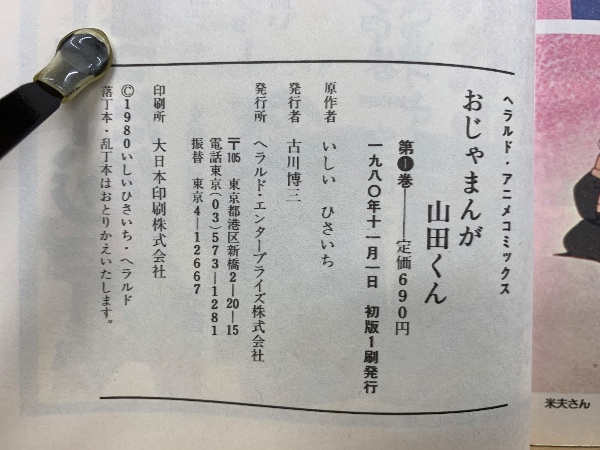 ヘラルド・アニメコミックス
おじゃまんが
山田くん
第❶巻──定価690円
一九八〇年十一月一日　初版1刷発行
原作者　いしい　ひさいち
発行者　古川博三
発行所　ヘラルド・エンタープライズ株式会社
〒105　東京都港区新橋2―20―15
電話東京(03)573―1281
振替　東京4―12667
印刷所　大日本印刷株式会社
©1980いしいひさいち・ヘラルド
落丁本・乱丁本はおとりかえいたします。
米夫さん